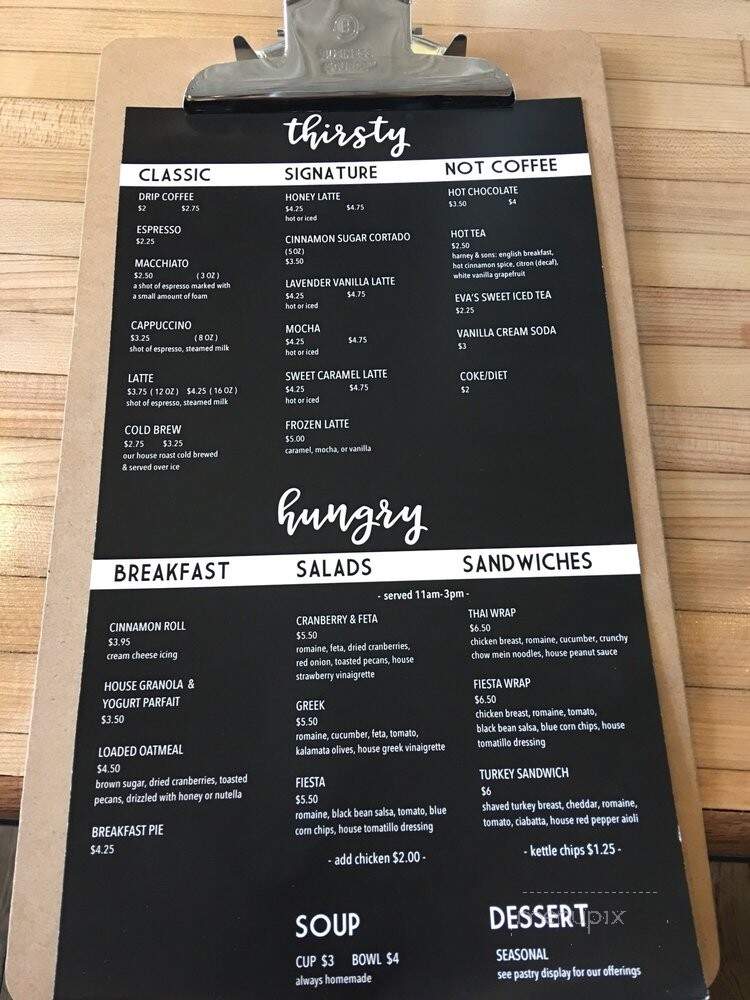 thirsty
CLASSIC
DRIP COFFEE
$2 $2.75
ESPRESSO
$2.25
MACCHIATO
$2.50 ( 3 OZ )
a shot of espresso marked with
a small amount of foam
CAPPUCCINO
$3.25 ( 8 OZ )
shot of espresso, steamed milk
LATTE
$3.75 ( 12 OZ ) $4.25 ( 16 OZ )
shot of espresso, steamed milk
COLD BREW
$2.75 $3.25
our house roast cold brewed
& served over ice
SIGNATURE
HONEY LATTE
$4.25 $4.75
hot or iced
CINNAMON SUGAR CORTADO
(5 OZ)
$3.50
LAVENDER VANILLA LATTE
$4.25 $4.75
hot or iced
MOCHA
$4.25 $4.75
hot or iced
SWEET CARAMEL LATTE
$4.25 $4.75
hot or iced
FROZEN LATTE
$5.00
caramel, mocha, or vanilla
NOT COFFEE
HOT CHOCOLATE
$3.50 $4
HOT TEA
$2.50
harney & sons: english breakfast,
hot cinnamon spice, citron (decaf),
white vanilla grapefruit
EVA'S SWEET ICED TEA
$2.25
VANILLA CREAM SODA
$3
COKE/DIET
$2
hungry
BREAKFAST
CINNAMON ROLL
$3.95
cream cheese icing
HOUSE GRANOLA &
YOGURT PARFAIT
$3.50
LOADED OATMEAL
$4.50
brown sugar, dried cranberries, toasted
pecans, drizzled with honey or nutella
BREAKFAST PIE
$4.25
SALADS
SANDWICHES
- served 11am-3pm -
CRANBERRY & FETA
$5.50
romaine, feta, dried cranberries,
red onion, toasted pecans, house
strawberry vinaigrette
GREEK
$5.50
romaine, cucumber, feta, tomato,
kalamata olives, house greek vinaigrette
FIESTA
$5.50
romaine, black bean salsa, tomato, blue
corn chips, house tomatillo dressing
- add chicken $2.00 -
THAI WRAP
$6.50
chicken breast, romaine, cucumber, crunchy
chow mein noodles, house peanut sauce
FIESTA WRAP
$6.50
chicken breast, romaine, tomato,
black bean salsa, blue corn chips, house
tomatillo dressing
TURKEY SANDWICH
$6
shaved turkey breast, cheddar, romaine,
tomato, ciabatta, house red pepper aioli
- kettle chips $1.25 -
SOUP
CUP $3 BOWL $4
always homemade
DESSERT
SEASONAL
see pastry display for our offerings
menupix